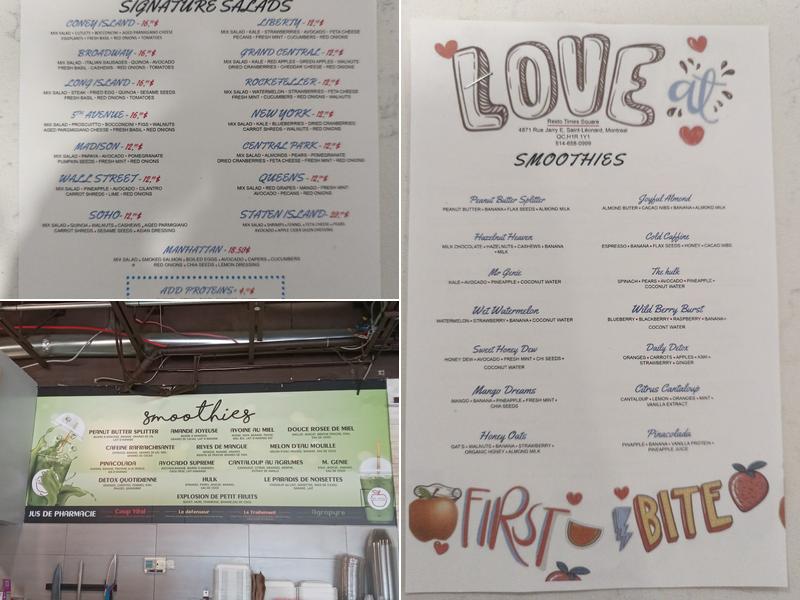 SIGNATURE SALADS
CONEY ISLAND - 16,99$
LIBERTY - 12,99$
MIX SALAD - KALE - STRAWBERRIES - AVOCADO - FETA CHEESE
PECANS - FRESH MINT - CUCUMBERS - RED ONIONS
BROADWAY - 16,99$
MIX SALAD - ITALIAN SAUSAGES - QUINOA - AVOCADO
FRESH BASIL - CASHEWS - RED ONIONS - TOMATOES
GRAND CENTRAL - 12,99$
MIX SALAD - KALE - RED APPLES - GREEN APPLES - WALNUTS
DRIED CRANBERRIES - CHEDDAR CHEESE - RED ONIONS
LONG ISLAND - 16,99$
MIX SALAD - STEAK - FRIED EGG - QUINOA - SESAME SEEDS
FRESH BASIL - RED ONIONS - TOMATOES
ROCKEFELLER - 12,99$
MIX SALAD - WATERMELON - STRAWBERRIES - FETA CHEESE
FRESH MINT - CUCUMBERS - RED ONIONS - WALNUTS
5th AVENUE - 16,99$
MIX SALAD - PROSCIUTTO - BOCCONCINI - FIGS - WALNUTS
AGED PARMIGIANO CHEESE - FRESH BASIL - RED ONIONS
NEW YORK - 12,99$
MIX SALAD - KALE - BLUEBERRIES - DRIED CRANBERRIES
CARROT SHREDS - WALNUTS - RED ONIONS
MADISON - 12,99$
MIX SALAD - PAPAYA - AVOCADO - POMEGRANATE
PUMPKIN SEEDS - FRESH MINT - RED ONIONS
CENTRAL PARK - 12,99$
MIX SALAD - ALMONDS - PEARS - POMEGRANATE
DRIED CRANBERRIES - FETA CHEESE - FRESH MINT - RED ONIONS
WALL STREET - 12,99$
MIX SALAD - PINEAPPLE - AVOCADO - CILANTRO
CARROT SHREDS - LIME - RED ONIONS
QUEENS - 12,99$
MIX SALAD - RED GRAPES - MANGO - FRESH MINT
AVOCADO - PECANS - RED ONIONS
SOHO - 12,99$
MIX SALAD - QUINOA - WALNUTS - CASHEWS - AGED PARMIGIANO
CARROT SHREDS - SESAME SEEDS - ASIAN DRESSING
STATEN ISLAND - 20,99$
AVOCADO - APPLE CIDER DIJON DRESSING
MANHATTAN - 18.50$
MIX SALAD - SMOKED SALMON - BOILED EGGS - AVOCADO - CAPERS - CUCUMBERS
RED ONIONS - CHIA SEEDS - LEMON DRESSING
ADD PROTEINS - 4,99$
smoothies
PEANUT BUTTER SPLITTER
AMANDE JOYEUSE
AVOINE AU MIEL
DOUCE ROSEE DE MIEL
CAFEINE RAFRAICHISSANTE
REVES DE MANGUE
MELON D'EAU MOUILLE
PINACOLADA
AVOCADO SUPREME
CANTALOUP AU AGRUMES
M. GENIE
DETOX QUOTIDIENNE
HULK
LE PARADIS DE NOISETTES
EXPLOSION DE PETIT FRUITS
JUS DE PHARMACIE
Coup Vital
Le défenseur
Le Traitement
Agropyre
LOVE at
Resto Times Square
4871 Rue Jarry E, Saint-Léonard, Montreal
QC,H1R 1Y1
514-658-0999
SMOOTHIES
Peanut Butter Splitter
PEANUT BUTTER • BANANA • FLAX SEEDS • ALMOND MILK
Joyful Almond
ALMOND BUTTER • CACAO NIBS • BANANA • ALMOND MILK
Hazelnut Heaven
MILK CHOCOLATE • HAZELNUTS • CASHEWS • BANANA
• MILK
Cold Caffine
ESPRESSO • BANANA • FLAX SEEDS • HONEY • CACAO NIBS
Mr Genie
KALE • AVOCADO • PINEAPPLE • COCONUT WATER
The hulk
SPINACH • PEARS • AVOCADO • PINEAPPLE •
COCONUT WATER
Wet Watermelon
WATERMELON • STRAWBERRY • BANANA • COCONUT WATER
Wild Berry Burst
BLUEBERRY • BLACKBERRY • RASPBERRY • BANANA •
COCONT WATER
Sweet Honey Dew
HONEY DEW • AVOCADO • FRESH MINT • CHI SEEDS •
COCONUT WATER
Daily Detox
ORANGES • CARROTS • APPLES • KIWI •
STRAWBERRY • GINGER
Mango Dreams
MANGO • BANANA • PINEAPPLE • FRESH MINT •
CHIA SEEDS
Citrus Cantaloup
CANTALOUP • LEMON • ORANGES • MINT •
VANILLA EXTRACT
Honey Oats
OATS • WALNUTS • BANANA • STRAWBERRY •
ORGANIC HONEY • ALMOND MILK
Pinacolada
PINEAPPLE • BANANA • VANILLA PROTEIN •
PINEAPPLE JUICE
FIRST BITE